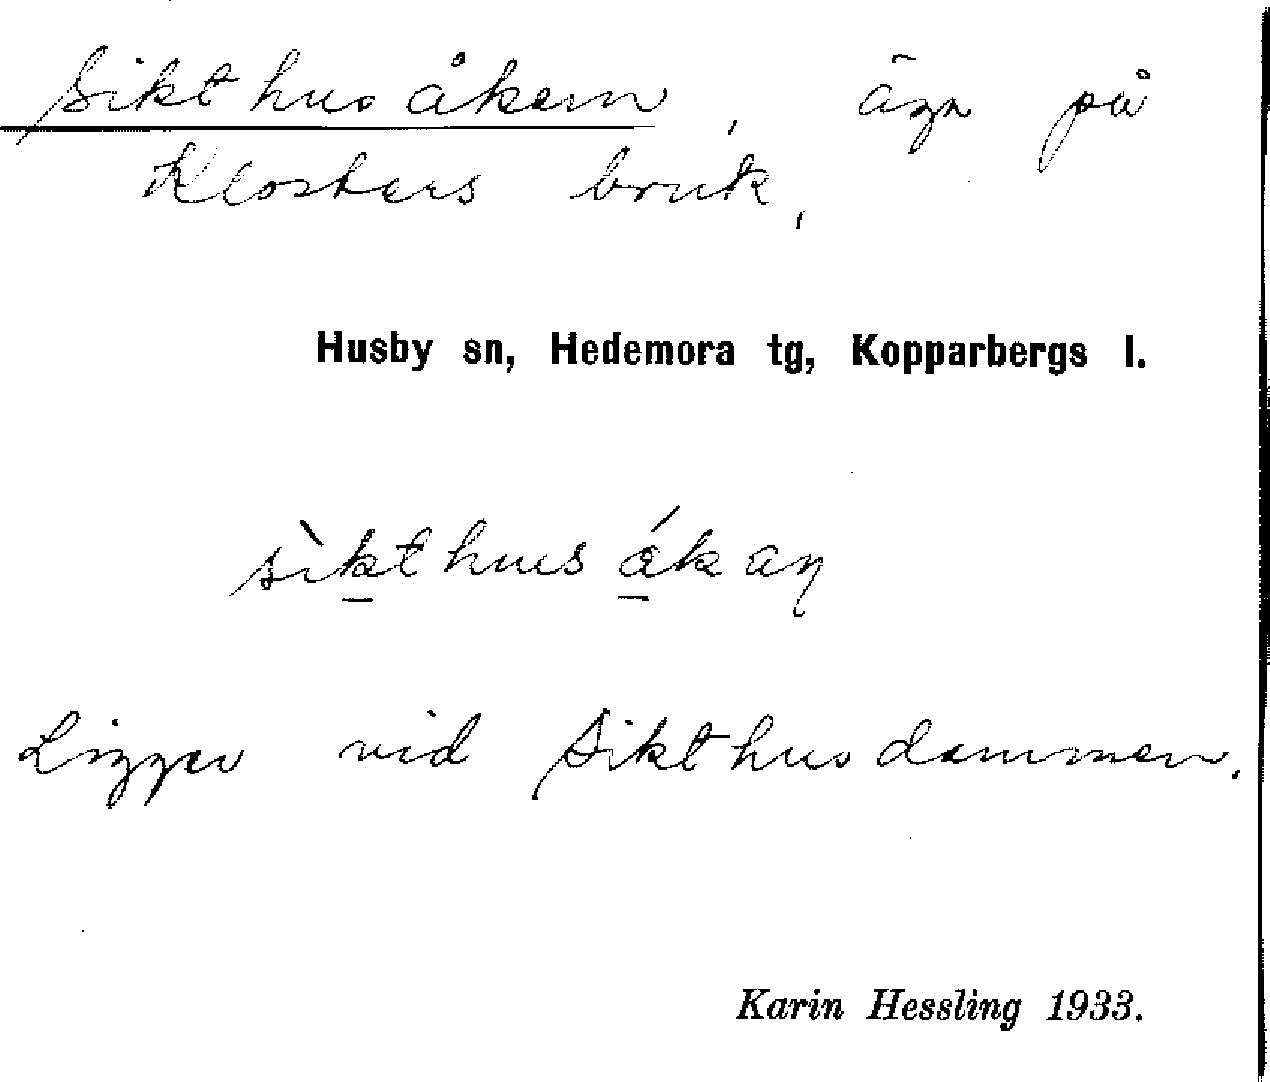 Sikthusåkern, ägn på
Klosters bruk,
Husby sn, Hedemora tg, Kopparbergs l.
sìkthusákaɳ
Ligger vid Sikthusdammen.
Karin Hessling 1933.